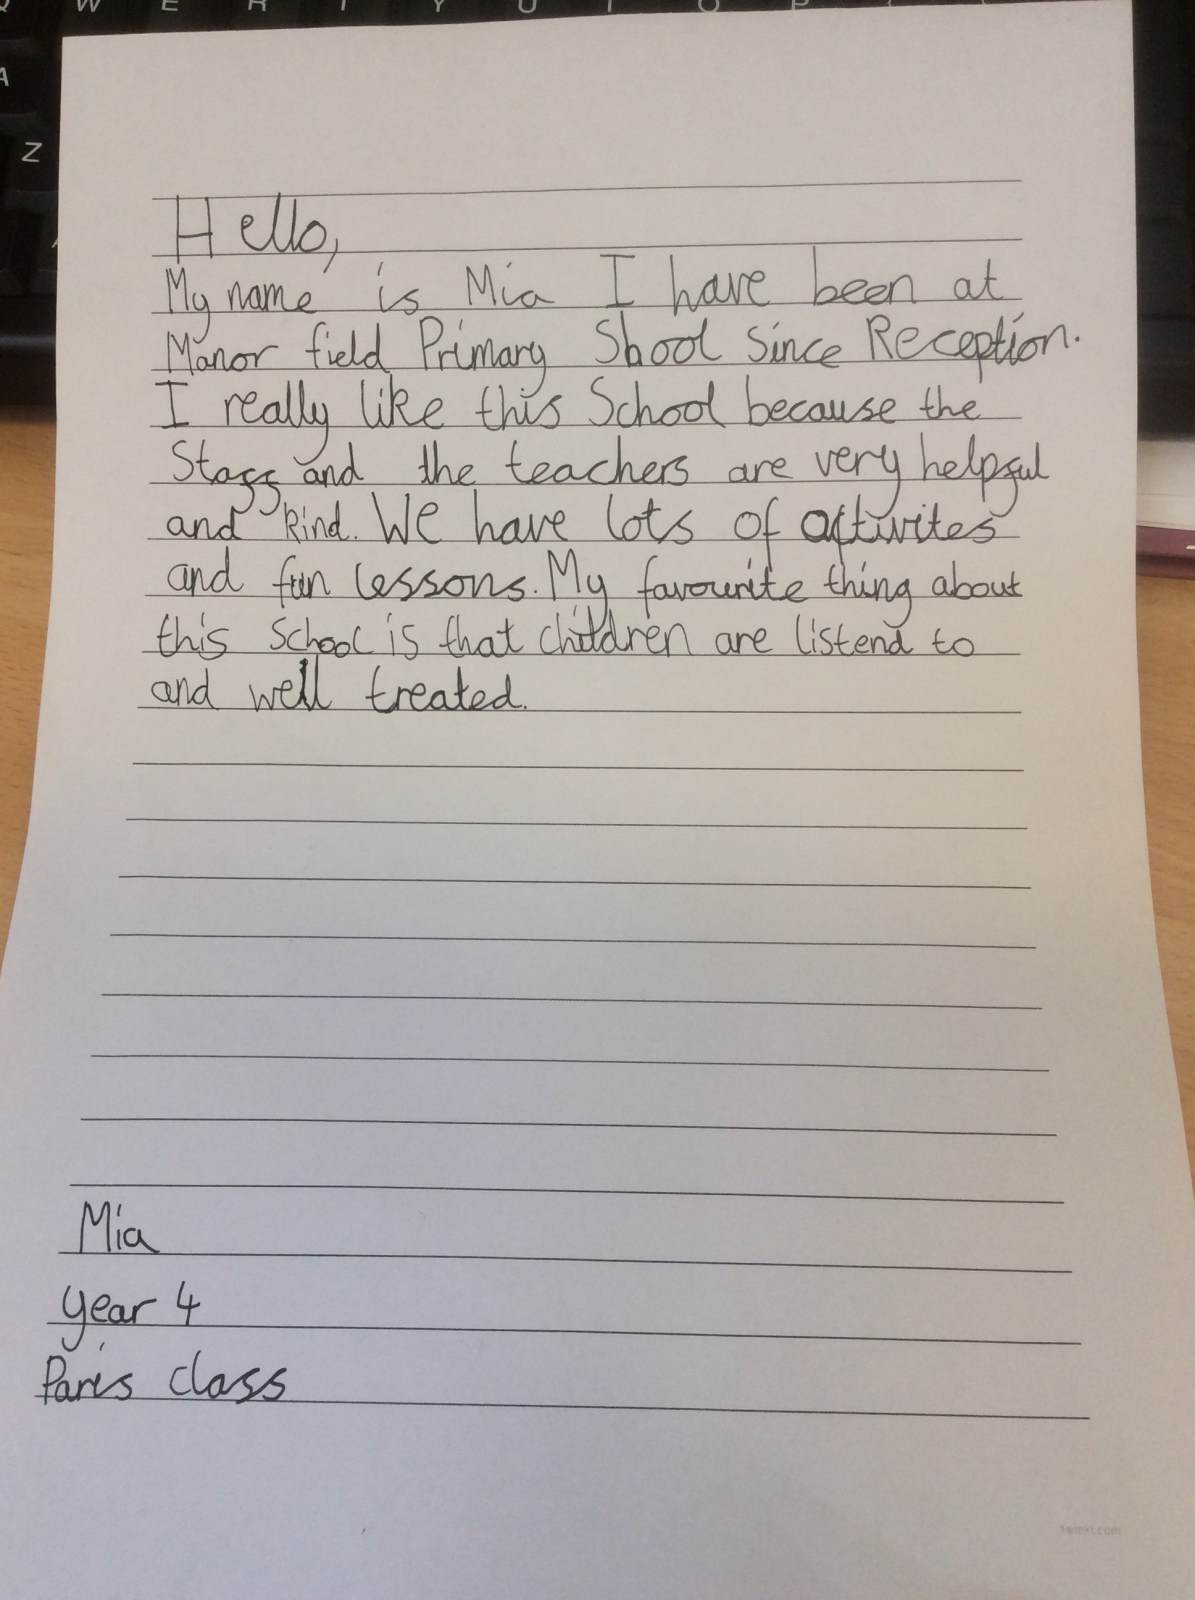 Q W E R T Y U I O P
A
Z
Hello,
My name is Mia I have been at
Manor field Primary Shool Since Reception.
I really like this School because the
Staff and the teachers are very helpful
and kind. We have lots of activites
and fun lessons. My favourite thing about
this School is that children are listend to
and well treated.
Mia
year 4
Paris class
twinkl.com